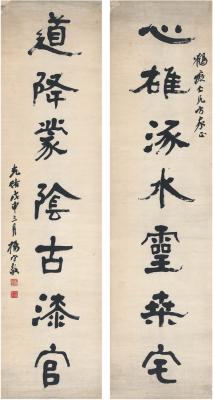 鶴仁兄方家正
心雄涿水靈桑宅
道降蒙陰古漆官
光緒戊申三月楊守敬